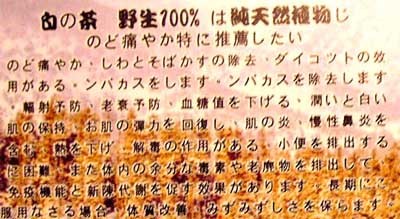 白の茶　野生100% は純天然植物じ
のど痛やか特に推薦したい
のど痛やか・しわとそばかすの除去・ダイコツトの效
用がある・ンパカスを除去します・ンバカスを除去します
・輻射予防、老衰予防、血糖値を下げる、潤いと白い
肌の保持、お肌の彈力を回復し、肌の炎、慢性鼻炎を
含む　熱を下げ　解毒の作用がある、小便を排出する
に困難　また体内の余分な毒素や老廃物を排出して
免疫機能と新陳代謝を促す效果があります。長期にこ
服用なさる場合、体質改善、みずみずしさを保らます。